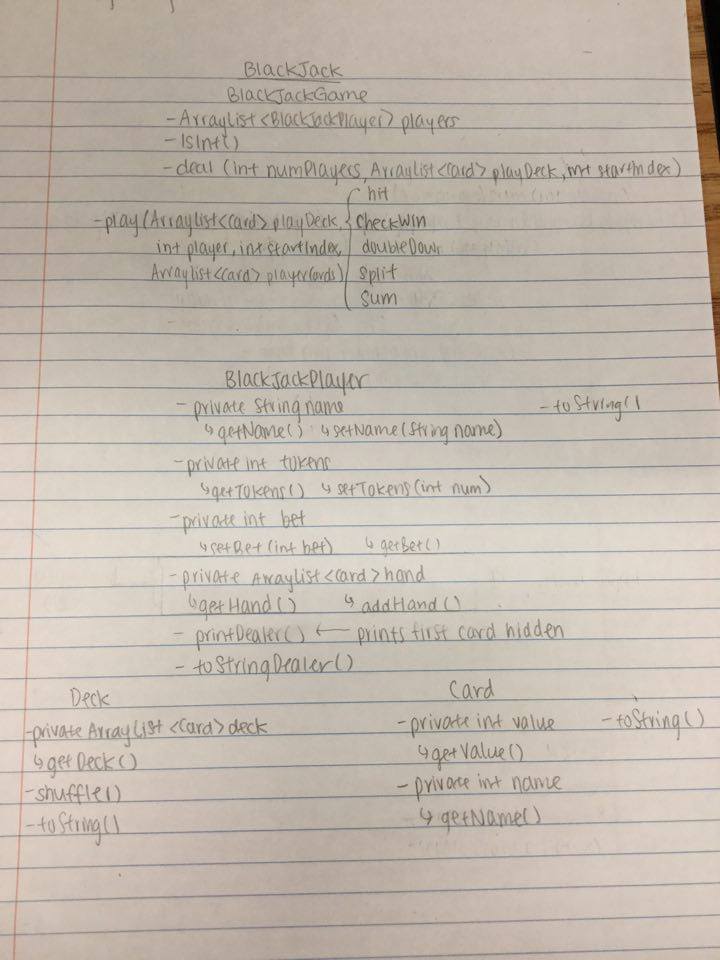 BlackJack
BlackJackGame
- ArrayList <BlackJackPlayer> players
- IsInt()
- deal (int numPlayers, ArrayList<Card> playDeck, int startIndex)
hit
- play(ArrayList<Card> playDeck, checkWin
int player, int startIndex, doubleDown
ArrayList<Card> playerCards) split
sum
BlackJackPlayer
- private String name - toString()
↳ getName() ↳ setName(String name)
- private int tokens
↳ getTokens() ↳ setTokens(int num)
- private int bet
↳ setBet (int bet) ↳ getBet()
- private ArrayList<Card> hand
↳ getHand() ↳ addHand()
- printDealer() ← prints first card hidden
- toStringDealer()
Deck
- private ArrayList <Card> deck
↳ getDeck()
- shuffle()
- toString()
Card
- private int value - toString()
↳ getValue()
- private int name
↳ getName()